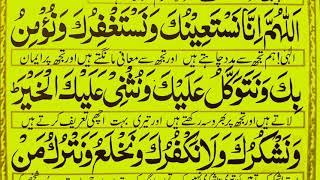 اَللّٰهُمَّ اِنَّا نَسْتَعِيْنُكَ وَنَسْتَغْفِرُكَ وَنُؤْمِنُ
الٰہی! ہم تجھ سے مدد چاہتے ہیں اور تجھ سے معافی مانگتے ہیں اور تجھ پر ایمان
بِكَ وَنَتَوَكَّلُ عَلَيْكَ وَنُثْنِيْ عَلَيْكَ الْخَيْرَ
لاتے ہیں اور تجھ پر بھروسہ رکھتے ہیں اور تیری بہت اچھی تعریف کرتے ہیں
وَنَشْكُرُكَ وَلَا نَكْفُرُكَ وَنَخْلَعُ وَنَتْرُكُ مَنْ